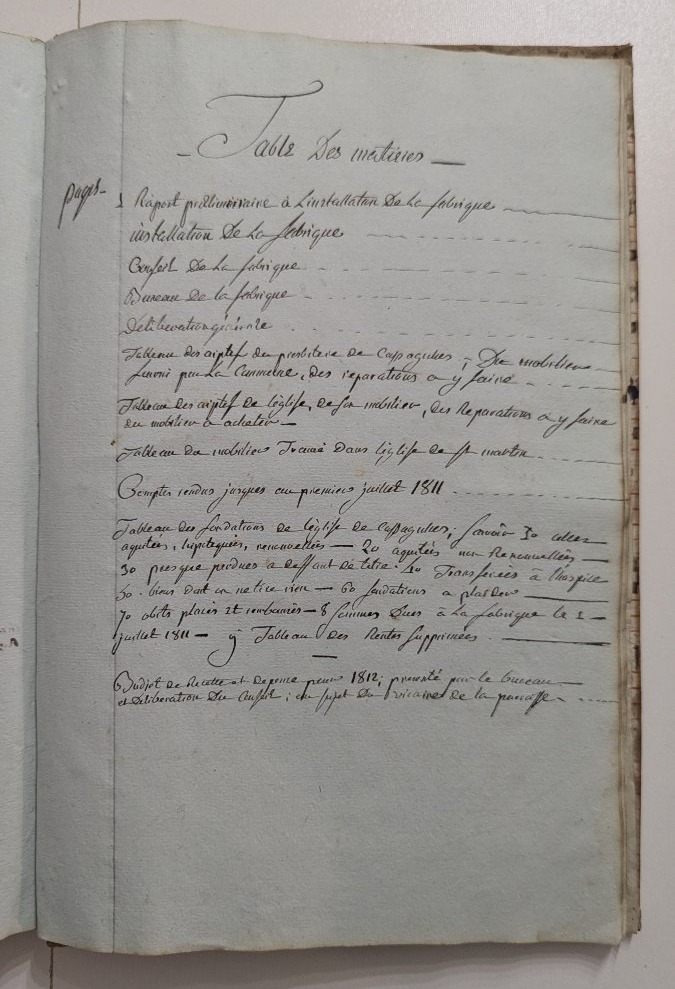 Table Des matieres
pages
1 Raport préliminaire à Linstallation De La fabrique
installation De La fabrique
Conseil De La fabrique
Bureau de la fabrique
Deliberation générale
Tableau des du presbitere de Cassagnes, Du mobilier
fourni par La Commune, des reparations a y faire
Tableau des de léglise, de son mobilier, des Reparations a y faire
du mobilier à acheter
Tableau du mobilier Trouvé Dans léglise de St martin
Comptes rendus jusques au premier juillet 1811
Tableau des fondations de léglise de Cassagnes; Savoir 30
aquitées, hipotequées, renouvellées — 20 aquitées non Renouvellées
30 presque perdues a deffaut de titre. 10 Transferées à lhospice
60. biens dont on ne tire rien — 60 fondations a plaider
70 obits placés et rembourés — 8 sommes Dues à La fabrique le 1
juillet 1811 — 9 Tableau des Rentes Supprimées
Budjet de Recette et depense pour 1812; presenté par le bureau
et Déliberation Du Conseil; au sujet du vicaire de la paroisse